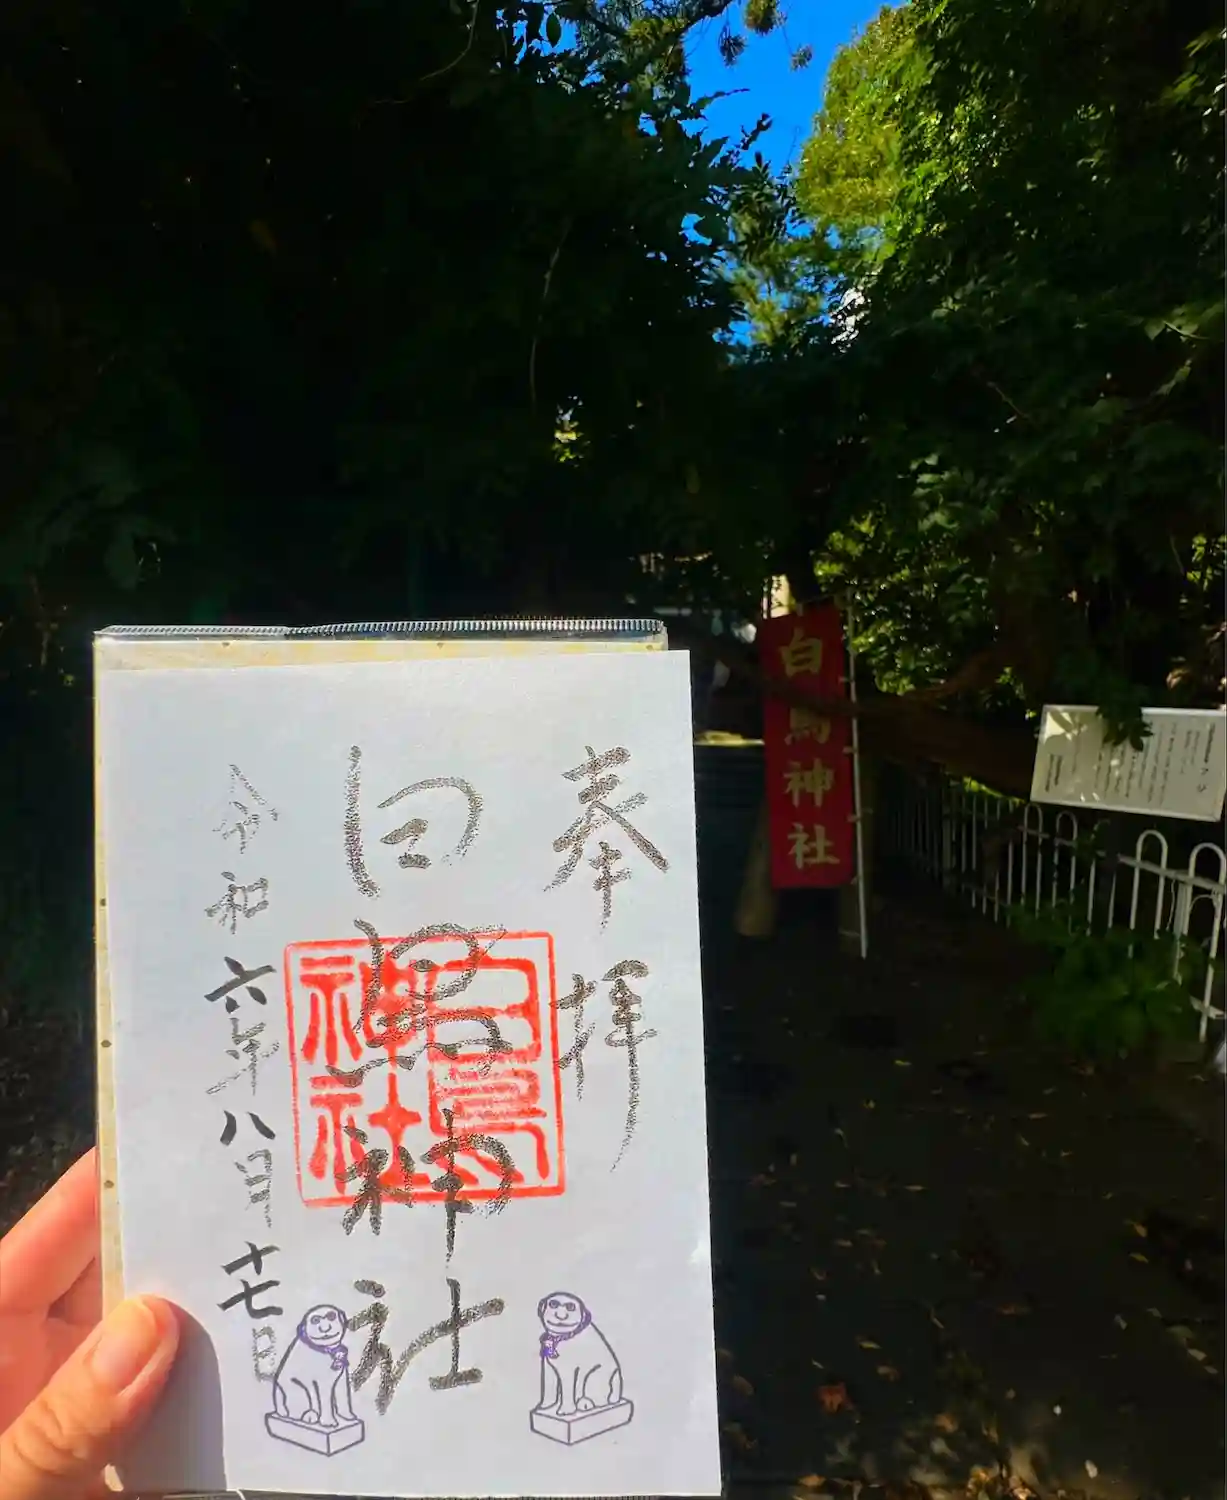 奉拝
白馬神社
令和六年八月十七日
白馬神社
白馬神社